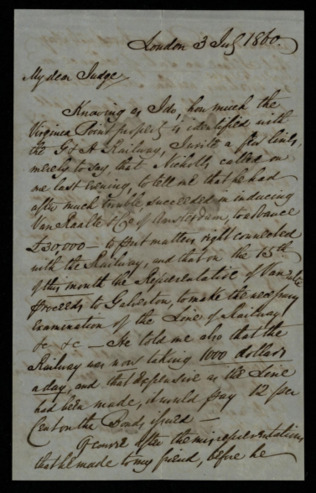 London 3 July 1860.
My dear Judge,
Knowing as I do, how much the
Virginia Point property is identified with
the G & H Railway, I write a few lines,
merely to say, that Nicholls called on
me last evening, to tell me that he had
after much trouble succeeded in inducing
Van Raalte & Co of Amsterdam, to advance
£30,000 — to put matters right connected
with the Railway, and that on the 15th
of this month the Representative of Van Raalte
proceeds to Galveston, to make the necessary
examination of the Line of Railway
&c &c — He told me also that the
Railway was now taking 1000 dollars
a day, and that expensive as the Line
had been made, it would pay 12 per
Cent on the Bonds issued —
Of course after the misrepresentations
that he made to my friend, before he